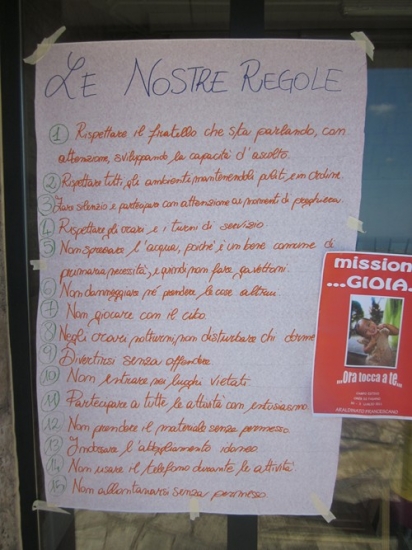 LE NOSTRE REGOLE
1 Rispettare il fratello che sta parlando, con
attenzione, sviluppando la capacità d'ascolto.
2 Rispettare tutti gli ambienti mantenendoli puliti e in ordine.
3 Fare silenzio e partecipare con attenzione ai momenti di preghiera.
4 Rispettare gli orari e i turni di servizio
5 Non sprecare l'acqua, poiché è un bene comune di
primaria necessità, e quindi non fare gavettoni.
6 Non danneggiare né prendere le cose altrui
7 Non giocare con il cibo.
8 Negli orari notturni non disturbare chi dorme
9 Divertirsi senza offendere
10 Non entrare nei luoghi vietati.
11 Partecipare a tutte le attività con entusiasmo
12 Non prendere il materiale senza permesso.
13 Indossare l'abbigliamento idoneo
14 Non usare il telefono durante le attività.
15 Non allontanarsi senza permesso.
mission
...GIOIA.
...ora tocca a te...